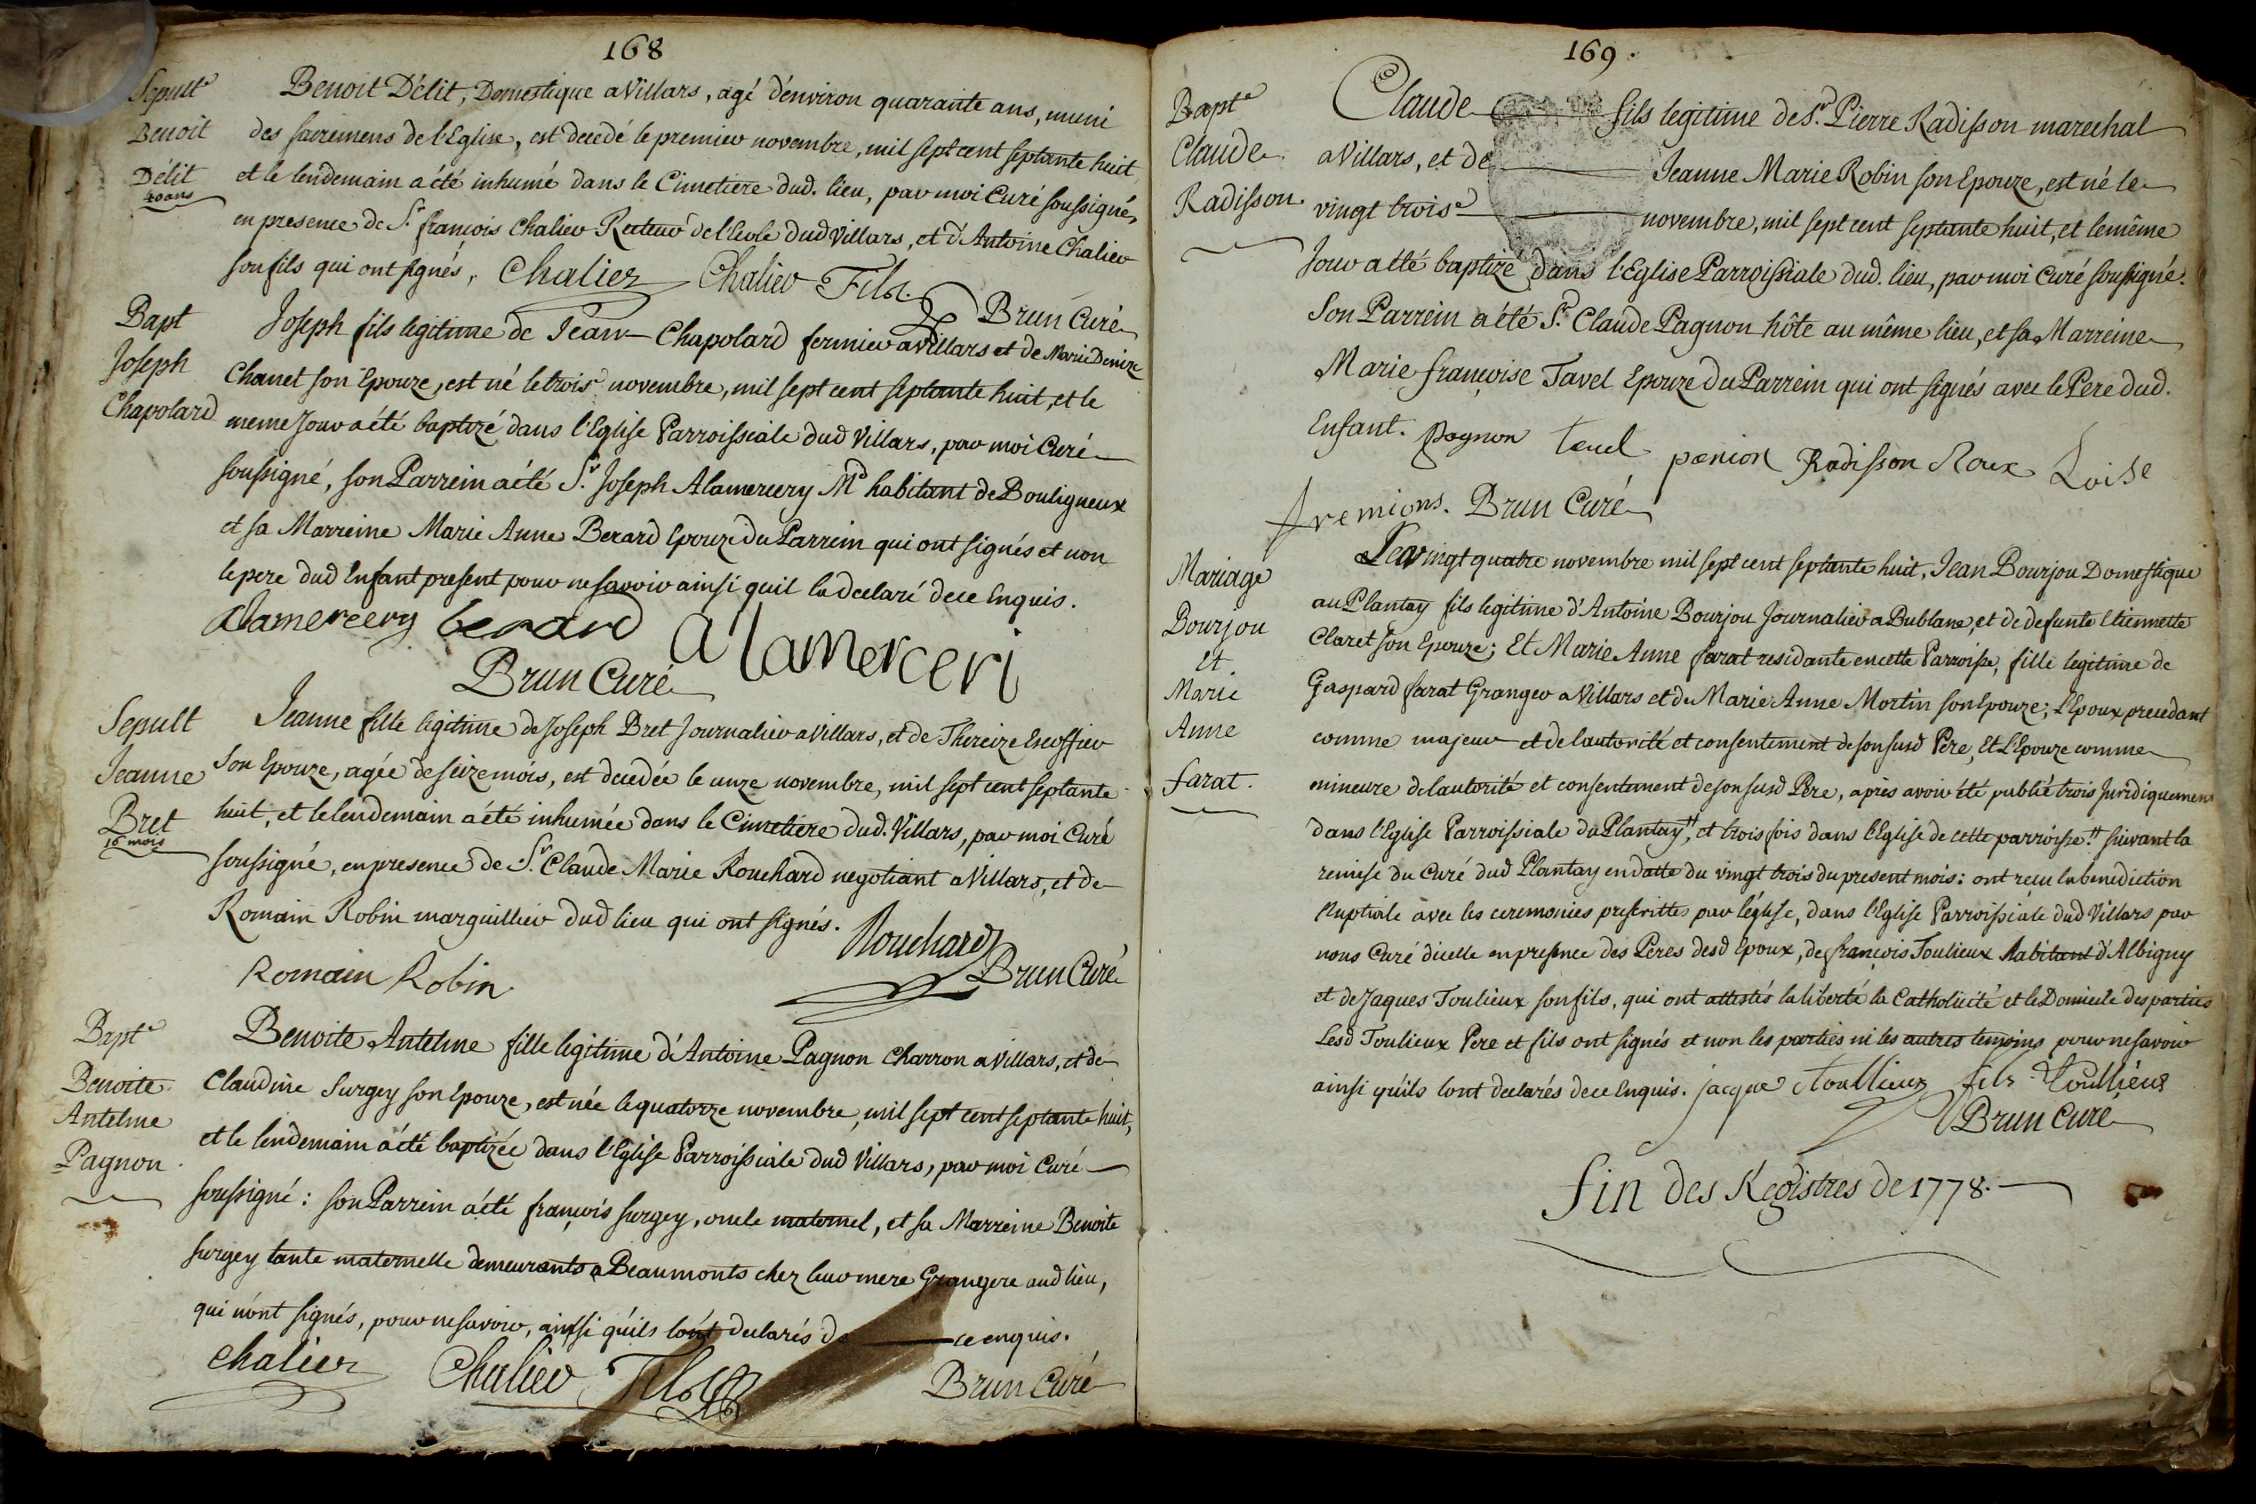 168
Sepult.e
Benoit
Délit
40 ans
Benoit Délit, Domestique a Villars, agé d'environ quarante ans, muni
des sacremens de l'Eglise, est decedé le premier novembre, mil sept cent septante huit
et le lendemain a été inhumé dans le Cimetiere dud. lieu, par moi Curé soussigné,
en presence de Sr. françois Chalier Recteur de l'école dud Villars, et d'Antoine Chalier
son fils qui ont signés, Chalier Chalier Fils.
Brun Curé
Bapt
Joseph
Chapolard
Joseph fils legitime de Jean Chapolard fermier a Villars et de Marie Denize
Chanet son Epouze, est né le trois.e novembre, mil sept cent septante huit, et le
meme Jour a été baptizé dans l'Eglise Parroissiale dud Villars, par moi Curé
soussigné, son Parrein a été Sr. Joseph Alamercery Md habitant de Bouligneux
et sa Marreine Marie Anne Berard Epouze du Parrein qui ont signés et non
le pere dud Enfant present pour ne savoir ainsi quil la declaré de ce Enquis.
alamercery berard alamerceri
Brun Curé
Sepult
Jeanne
Bret
16 mois
Jeanne fille legitime de Joseph Bret Journalier a Villars, et de Théreize Escoffier
son Epouze, agée de seize mois, est decedée le unze novembre, mil sept cent septante
huit, et le lendemain a été inhumée dans le Cimetiere dud. Villars, par moi Curé
soussigné, en presence de Sr. Claude Marie Rouchard negotiant a Villars, et de
Romain Robin marguillier dud lieu qui ont signés. Rouchard
Romain Robin. Brun Curé
Bapt.e
Benoite
Antelme
Pagnon
Benoite Antelme fille legitime d'Antoine Pagnon charron a Villars, et de
Claudine Surgey son Epouze, est née le quatorze novembre, mil sept cent septante huit,
et le lendemain a été baptizée dans l'Eglise Parroissiale dud Villars, par moi Curé
soussigné: son Parrein a été françois surgey, oncle maternel, et sa Marreine Benoite
surgey tante maternelle demeurants a Beaumonts chez leur mere Grangere aud lieu,
qui n'ont signés, pour ne savoir, ainssi qu'ils l'ont declarés de ce enquis.
chalier Chalier Fils
Brun Curé
169.
Bapt.e
Claude
Radisson
Claude fils legitime de Sr. Pierre Radisson marechal
a Villars, et de Jeanne Marie Robin son Epouze, est né le
vingt trois.e novembre, mil sept cent septante huit, et le même
Jour a été baptizé dans l'Eglise Parroissiale dud. lieu, par moi Curé soussigné.
Son Parrein a été Sr. Claude Pagnon hôte au même lieu, et sa Marreine
Marie françoise Tavel Epouze du Parrein qui ont signés avec le Pere dud.
Enfant. Pagnon tavel panion Radisson Roux Loise
fremions. Brun Curé
Mariage
Bourjou
Et
Marie
Anne
farat.
Le vingt quatre novembre mil sept cent septante huit, Jean Bourjou Domestique
au Plantay fils legitime d'Antoine Bourjou Journalier a Bublane, et de defunte Etiennette
Claret son Epouze; Et Marie Anne farat residante en cette Parroisse, fille legitime de
Gaspard farat Granger a Villars et de Marie Anne Mortin son Epouze; L'Epoux precedant
comme majeur et de l'autorité et consentement de son susd Pere, Et L'Epouze comme
mineure de l'autorité et consentement de son susd Pere, après avoir été publié trois Juridiquement
dans l'Eglise Parroissiale du Plantay", et trois fois dans l'Eglise de cette parroisse" suivant la
remise du Curé dud Plantay en datte du vingt trois du present mois: ont reçu la benediction
Nuptiale avec les ceremonies prescrittes par l'église, dans l'Eglise Parroissiale dud Villars par
nous Curé d'icelle en presence des Peres desd Epoux, de françois Toulieux habitant d'Albigny
et de Jaques Toulieux son fils, qui ont attestés la liberté la Catholicité et le Domicile des parties
Lesd Toulieux Pere et fils ont signés et non les parties ni les autres temoins pour ne savoir
ainsi qu'ils l'ont declarés de ce Enquis. jacque toullieux fils Toullieux
Brun Curé
fin des Régistres de 1778.